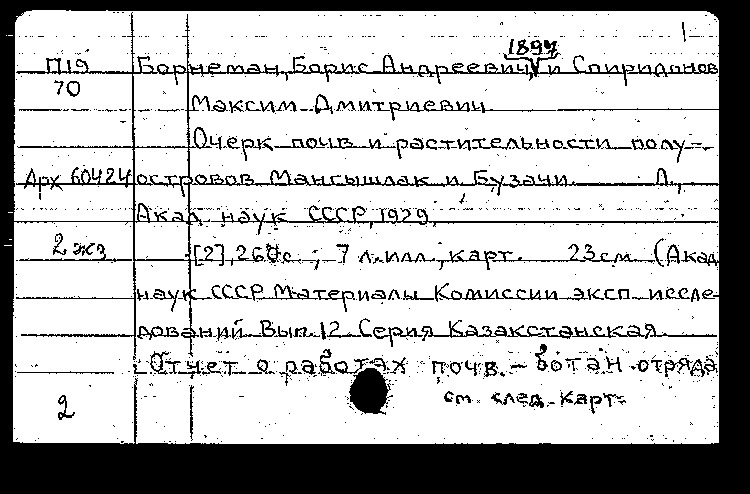 1897
П19 Борнеман, Борис Андреевич, и Спиридонов
70 Максим Дмитриевич
Очерк почв и растительности полу-
Арх 60424 островов Мангышлак и Бузачи. Л.,
Акад. наук СССР, 1929.
2 экз. [2], 260с.; 7 л. илл., карт. 23см (Акад.
наук СССР Материалы Комиссии эксп. иссле-
дований Вып. 12 Серия Казакстанская.
Отчет о работах почв.-ботан. отряда
2 см. след. карт.